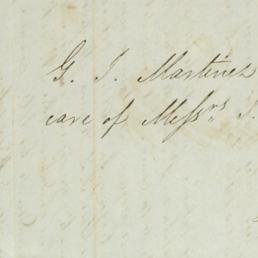 G. J. Martinez
care of Messrs